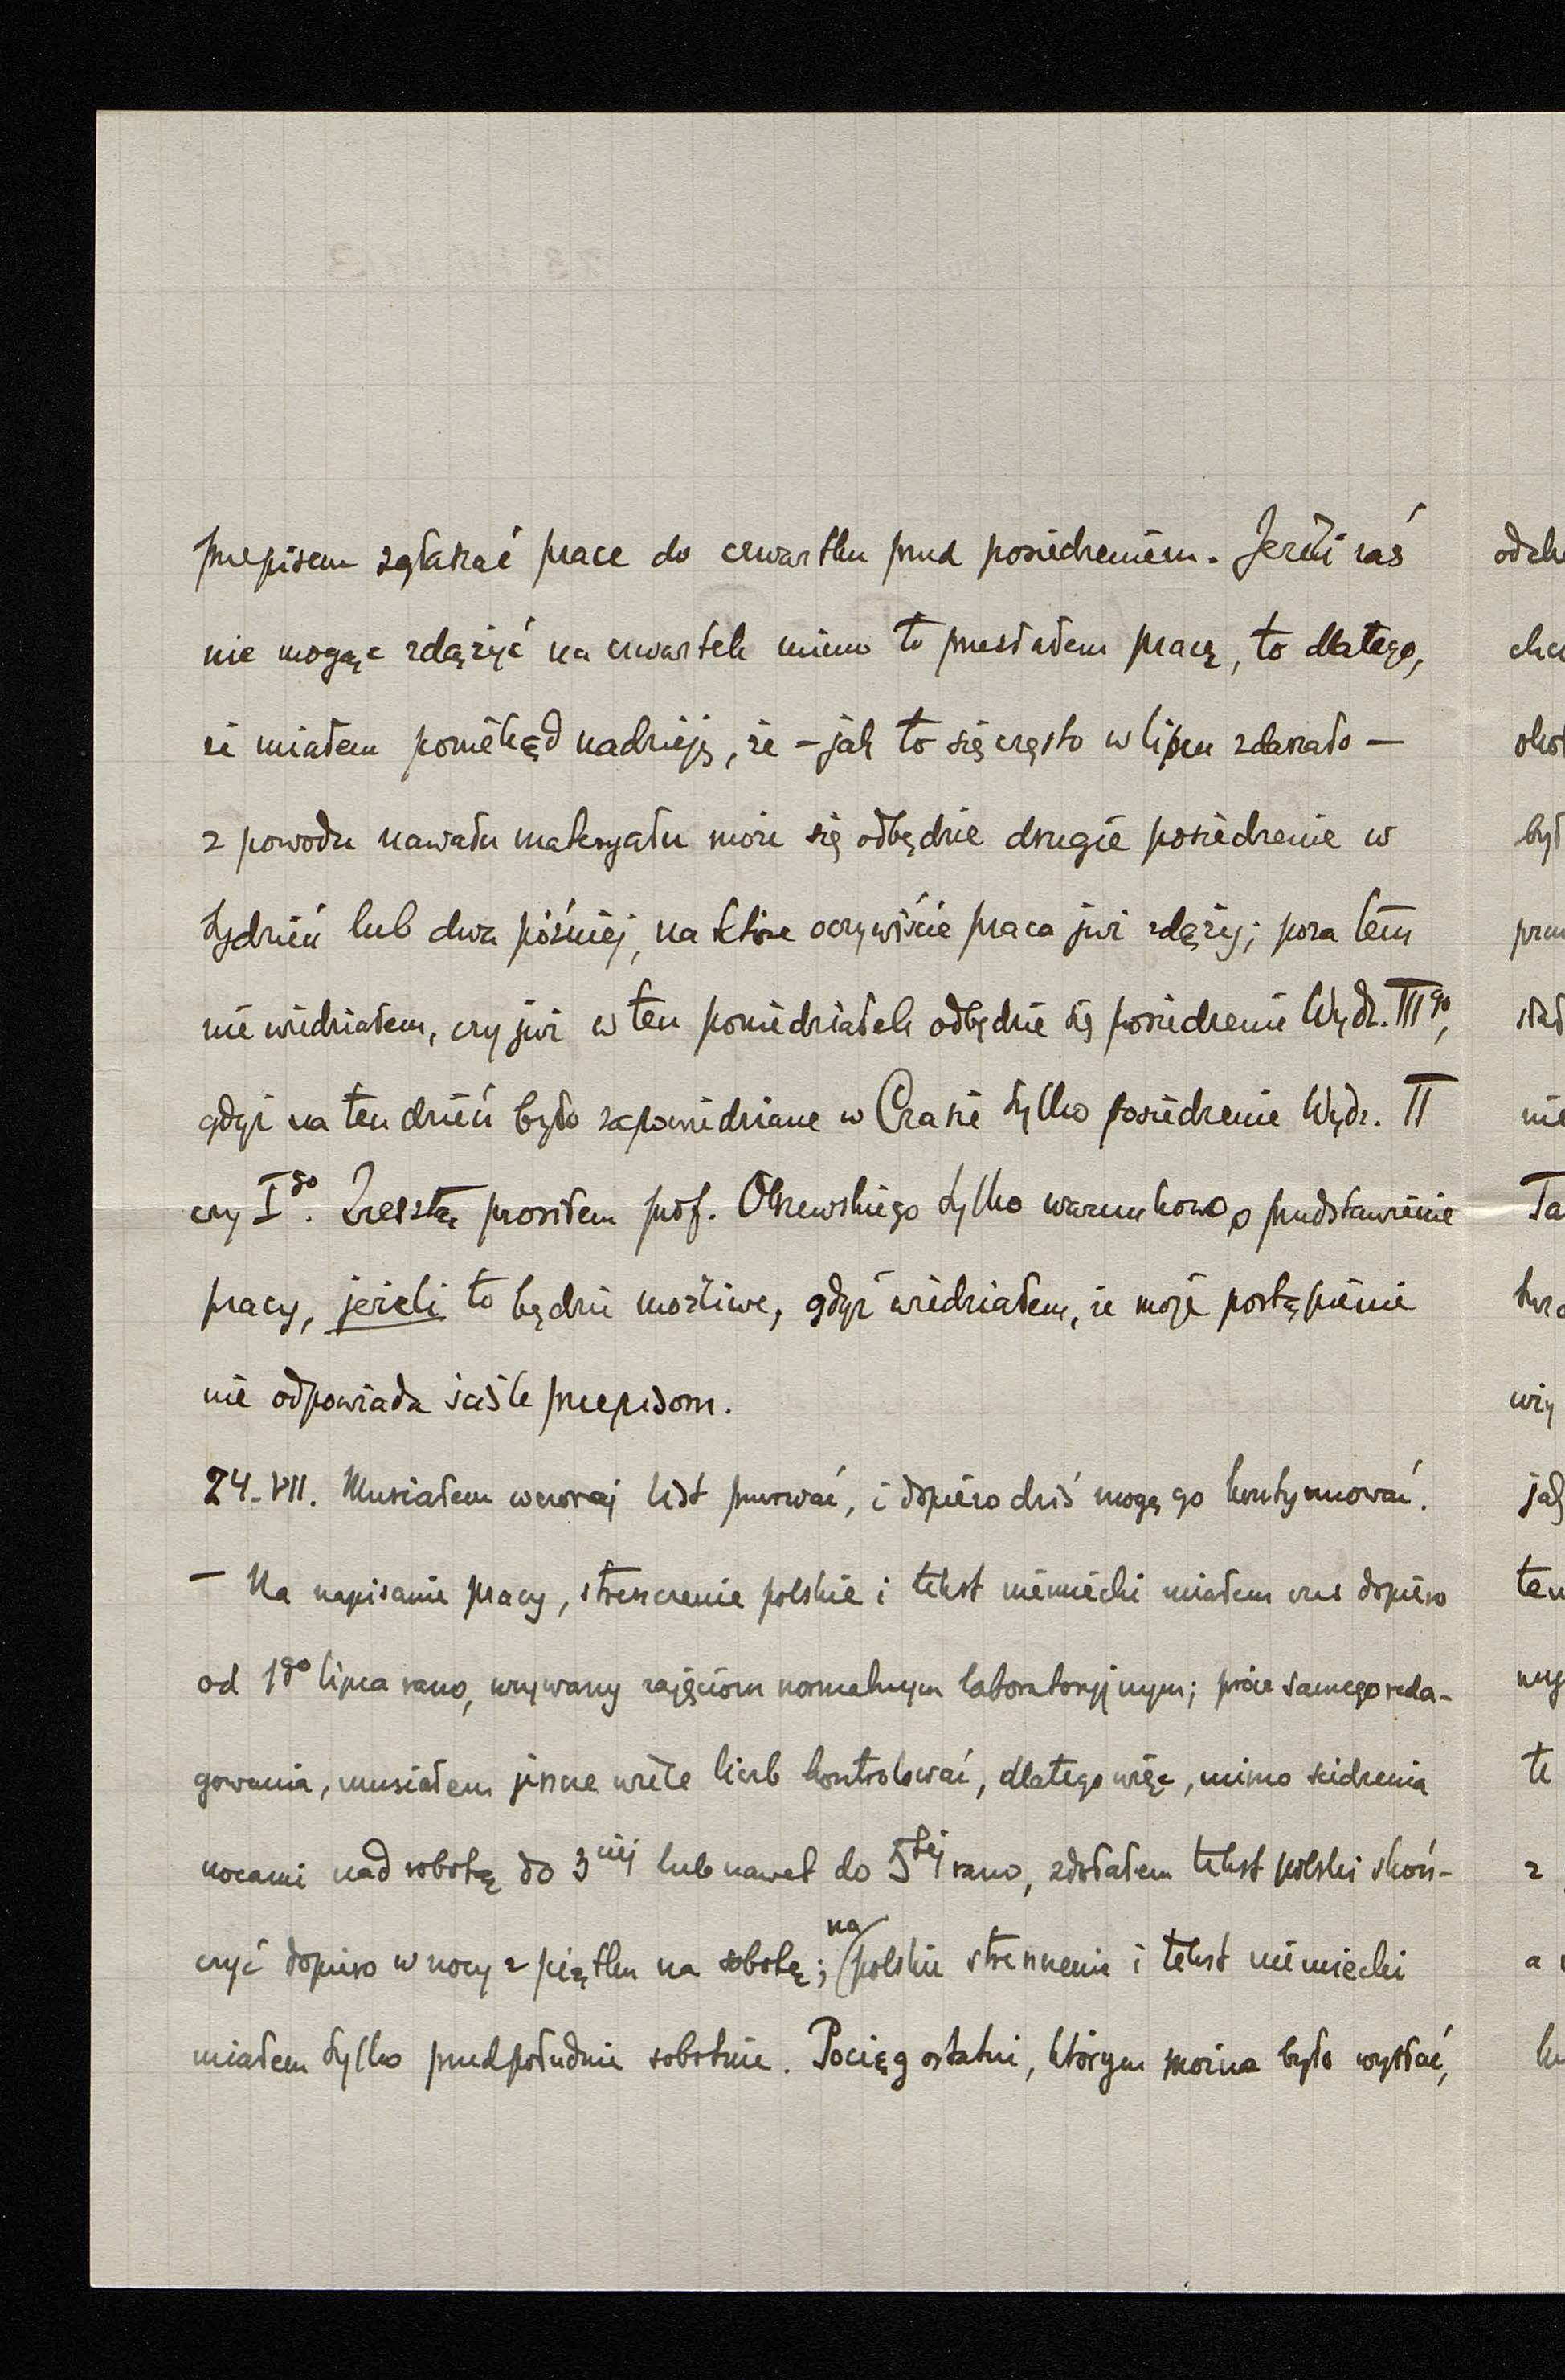 przepisem zgłaszać prace do czwartku przed posiedzeniem. Jeżeli zaś
nie mogąc zdążyć na czwartek mimo to przesłałem pracę, to dlatego,
że miałem poniekąd nadzieję, że – jak to się często w lipcu zdarzało –
z powodu nawału materyału może się odbędzie drugie posiedzenie w
tydzień lub dwa później, na które oczywiście praca już zdąży; poza tem
nie wiedziałem, czy już w ten poniedziałek odbędzie się posiedzenie Wydz. III go,
gdyż na ten dzień było zapowiedziane w Czasie tylko posiedzenie Wydz. II
czy I go. Zresztą prosiłem prof. Olszewskiego tylko warunkowo o przedstawienie
pracy, jeżeli to będzie możliwe, gdyż wiedziałem, że moje postąpienie
nie odpowiada ściśle przepisom.
24.VII. Musiałem wczoraj list przerwać, i dopiero dziś mogę go kontynuować.
– Na napisanie pracy, streszczenie polskie i tekst niemiecki miałem czas dopiero
od 1 go lipca rano, wrywany zajęciom normalnym laboratoryjnym; prócz samego reda-
gowania, musiałem jeszcze wiele liczb kontrolować, dlatego więc, mimo siedzenia
nocami nad robotą do 3 ciej lub nawet do 5 tej rano, zdołałem tekst polski skoń-
czyć dopiero w nocy z piątku na sobotę; na polskie streszczenie i tekst niemiecki
miałem tylko przedpołudnie sobotnie. Pociąg ostatni, którym można było wysłać,